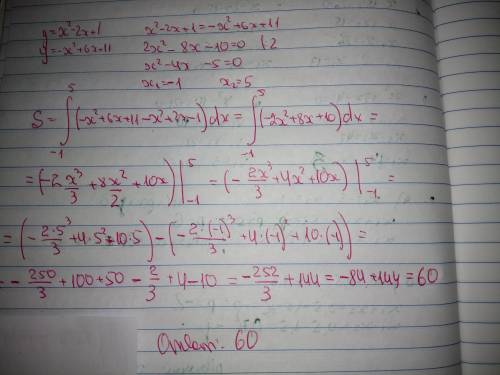 y=x²-2x+1    x²-2x+1=-x²+6x+11
y=-x²+6x+11    2x²-8x-10=0 |:2
x²-4x-5=0
x₁=-1    x₂=5
S=∫₋₁⁵(-x²+6x+11-x²+2x-1)dx=∫₋₁⁵(-2x²+8x+10)dx=
=(-2x³/3+8x²/2+10x)|₋₁⁵=(-2x³/3+4x²+10x)|₋₁⁵=
=(-2·5³/3+4·5²+10·5)-(-2·(-1)³/3+4·(-1)²+10·(-1))=
--250/3+100+50-2/3+4-10=-252/3+144=-84+144=60
Ответ: 60